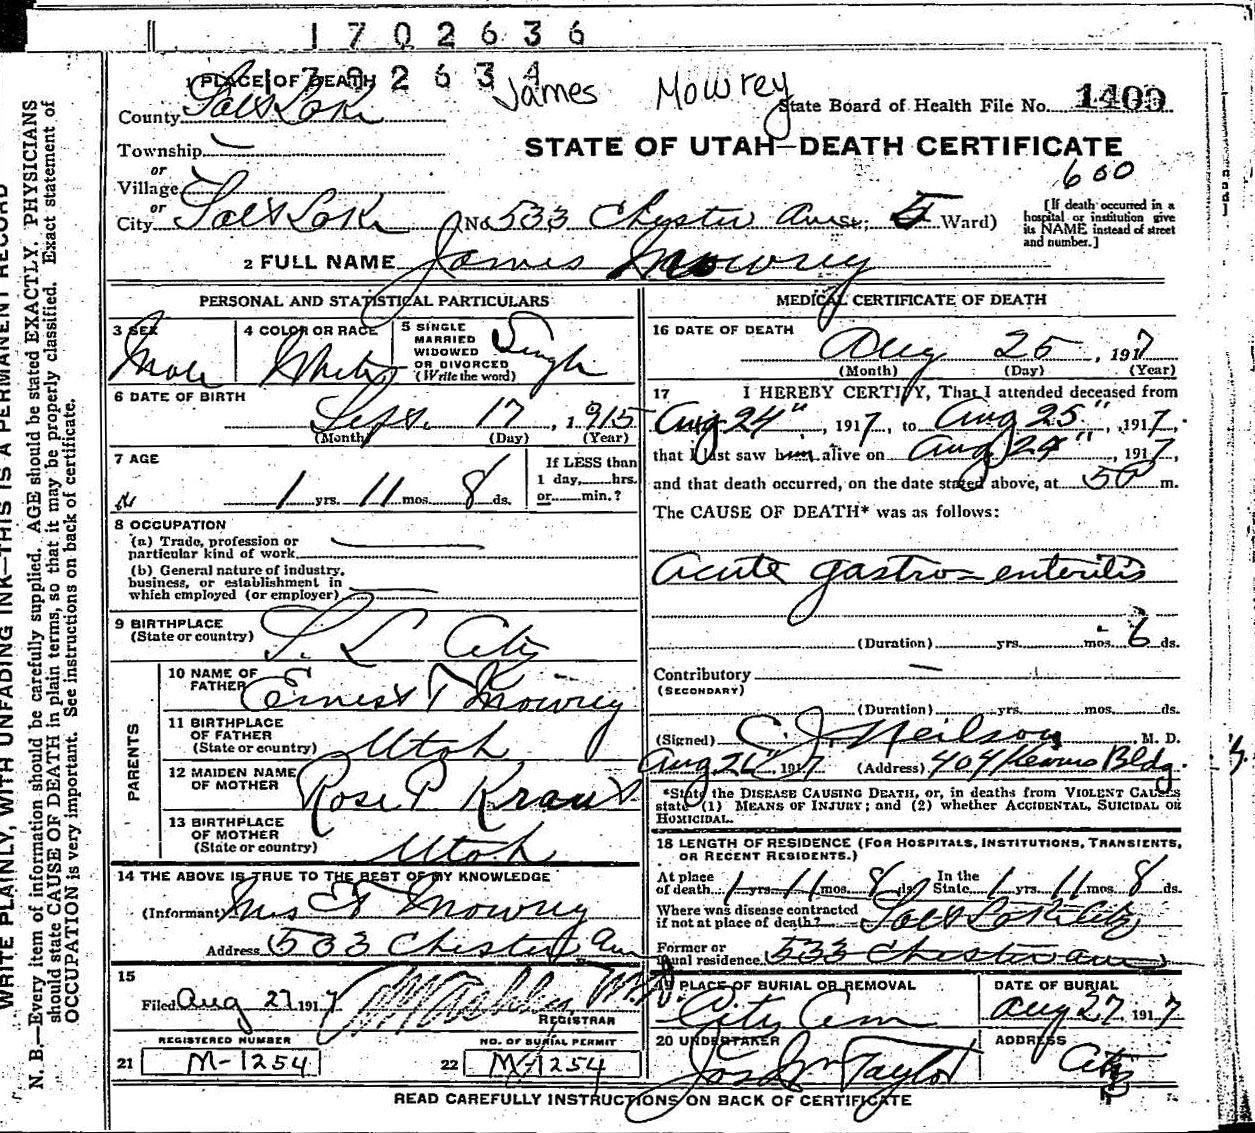 1 7 0 2 6 3 6
1 7 0 2 6 3 4
James Mowrey
1 PLACE OF DEATH
County Salt Lake
State Board of Health File No. 1409
Township
STATE OF UTAH—DEATH CERTIFICATE
or
Village
600
or
City Salt Lake (No. 533 Chester Ave St.; 5 Ward)
[If death occurred in a hospital or institution give its NAME instead of street and number.]
2 FULL NAME James Mowrey
PERSONAL AND STATISTICAL PARTICULARS
3 SEX
Male
4 COLOR OR RACE
White
5 SINGLE MARRIED WIDOWED OR DIVORCED (Write the word)
Single
6 DATE OF BIRTH
Sept. 17, 1915
(Month) (Day) (Year)
7 AGE
1 yrs. 11 mos. 8 ds.
If LESS than 1 day,......hrs. or......min.?
8 OCCUPATION
(a) Trade, profession or particular kind of work
(b) General nature of industry, business, or establishment in which employed (or employer)
9 BIRTHPLACE
(State or country) S. L. City
PARENTS
10 NAME OF FATHER Ernest T Mowrey
11 BIRTHPLACE OF FATHER
(State or country) Utah
12 MAIDEN NAME OF MOTHER Rose P Kraus
13 BIRTHPLACE OF MOTHER
(State or country) Utah
14 THE ABOVE IS TRUE TO THE BEST OF MY KNOWLEDGE
(Informant) Mrs E T Mowrey
Address 533 Chester Ave
15
Filed Aug 27 1917 M.D.
REGISTRAR
REGISTERED NUMBER
21 M-1254
NO. OF BURIAL PERMIT
22 M-1254
MEDICAL CERTIFICATE OF DEATH
16 DATE OF DEATH
Aug 25, 1917
(Month) (Day) (Year)
17 I HEREBY CERTIFY, That I attended deceased from
Aug 24", 1917, to Aug 25", 1917,
that I last saw him alive on Aug 24", 1917,
and that death occurred, on the date stated above, at 5 P m.
The CAUSE OF DEATH* was as follows:
Acute gastro-enteritis
(Duration) yrs. mos. 6 ds.
Contributory
(SECONDARY)
(Duration) yrs. mos. ds.
(Signed) E. J. Neilson M. D.
Aug 26" 1917 (Address) 404 Kearns Bldg.
*State the DISEASE CAUSING DEATH, or, in deaths from VIOLENT CAUSES
state (1) MEANS OF INJURY; and (2) whether ACCIDENTAL, SUICIDAL OR
HOMICIDAL.
18 LENGTH OF RESIDENCE (FOR HOSPITALS, INSTITUTIONS, TRANSIENTS,
OR RECENT RESIDENTS.)
At place of death 1 yrs. 11 mos. 8 ds. In the State 1 yrs. 11 mos. 8 ds.
Where was disease contracted if not at place of death? Salt Lake City
Former or usual residence 533 Chester Ave
19 PLACE OF BURIAL OR REMOVAL
City Cem
DATE OF BURIAL
Aug 27, 1917
20 UNDERTAKER
Jos Wm Taylor
ADDRESS
City
READ CAREFULLY INSTRUCTIONS ON BACK OF CERTIFICATE
WRITE PLAINLY, WITH UNFADING INK—THIS IS A PERMANENT RECORD
N. B.—Every item of information should be carefully supplied. AGE should be stated EXACTLY. PHYSICIANS
should state CAUSE OF DEATH in plain terms, so that it may be properly classified. Exact statement of
OCCUPATION is very important. See instructions on back of certificate.